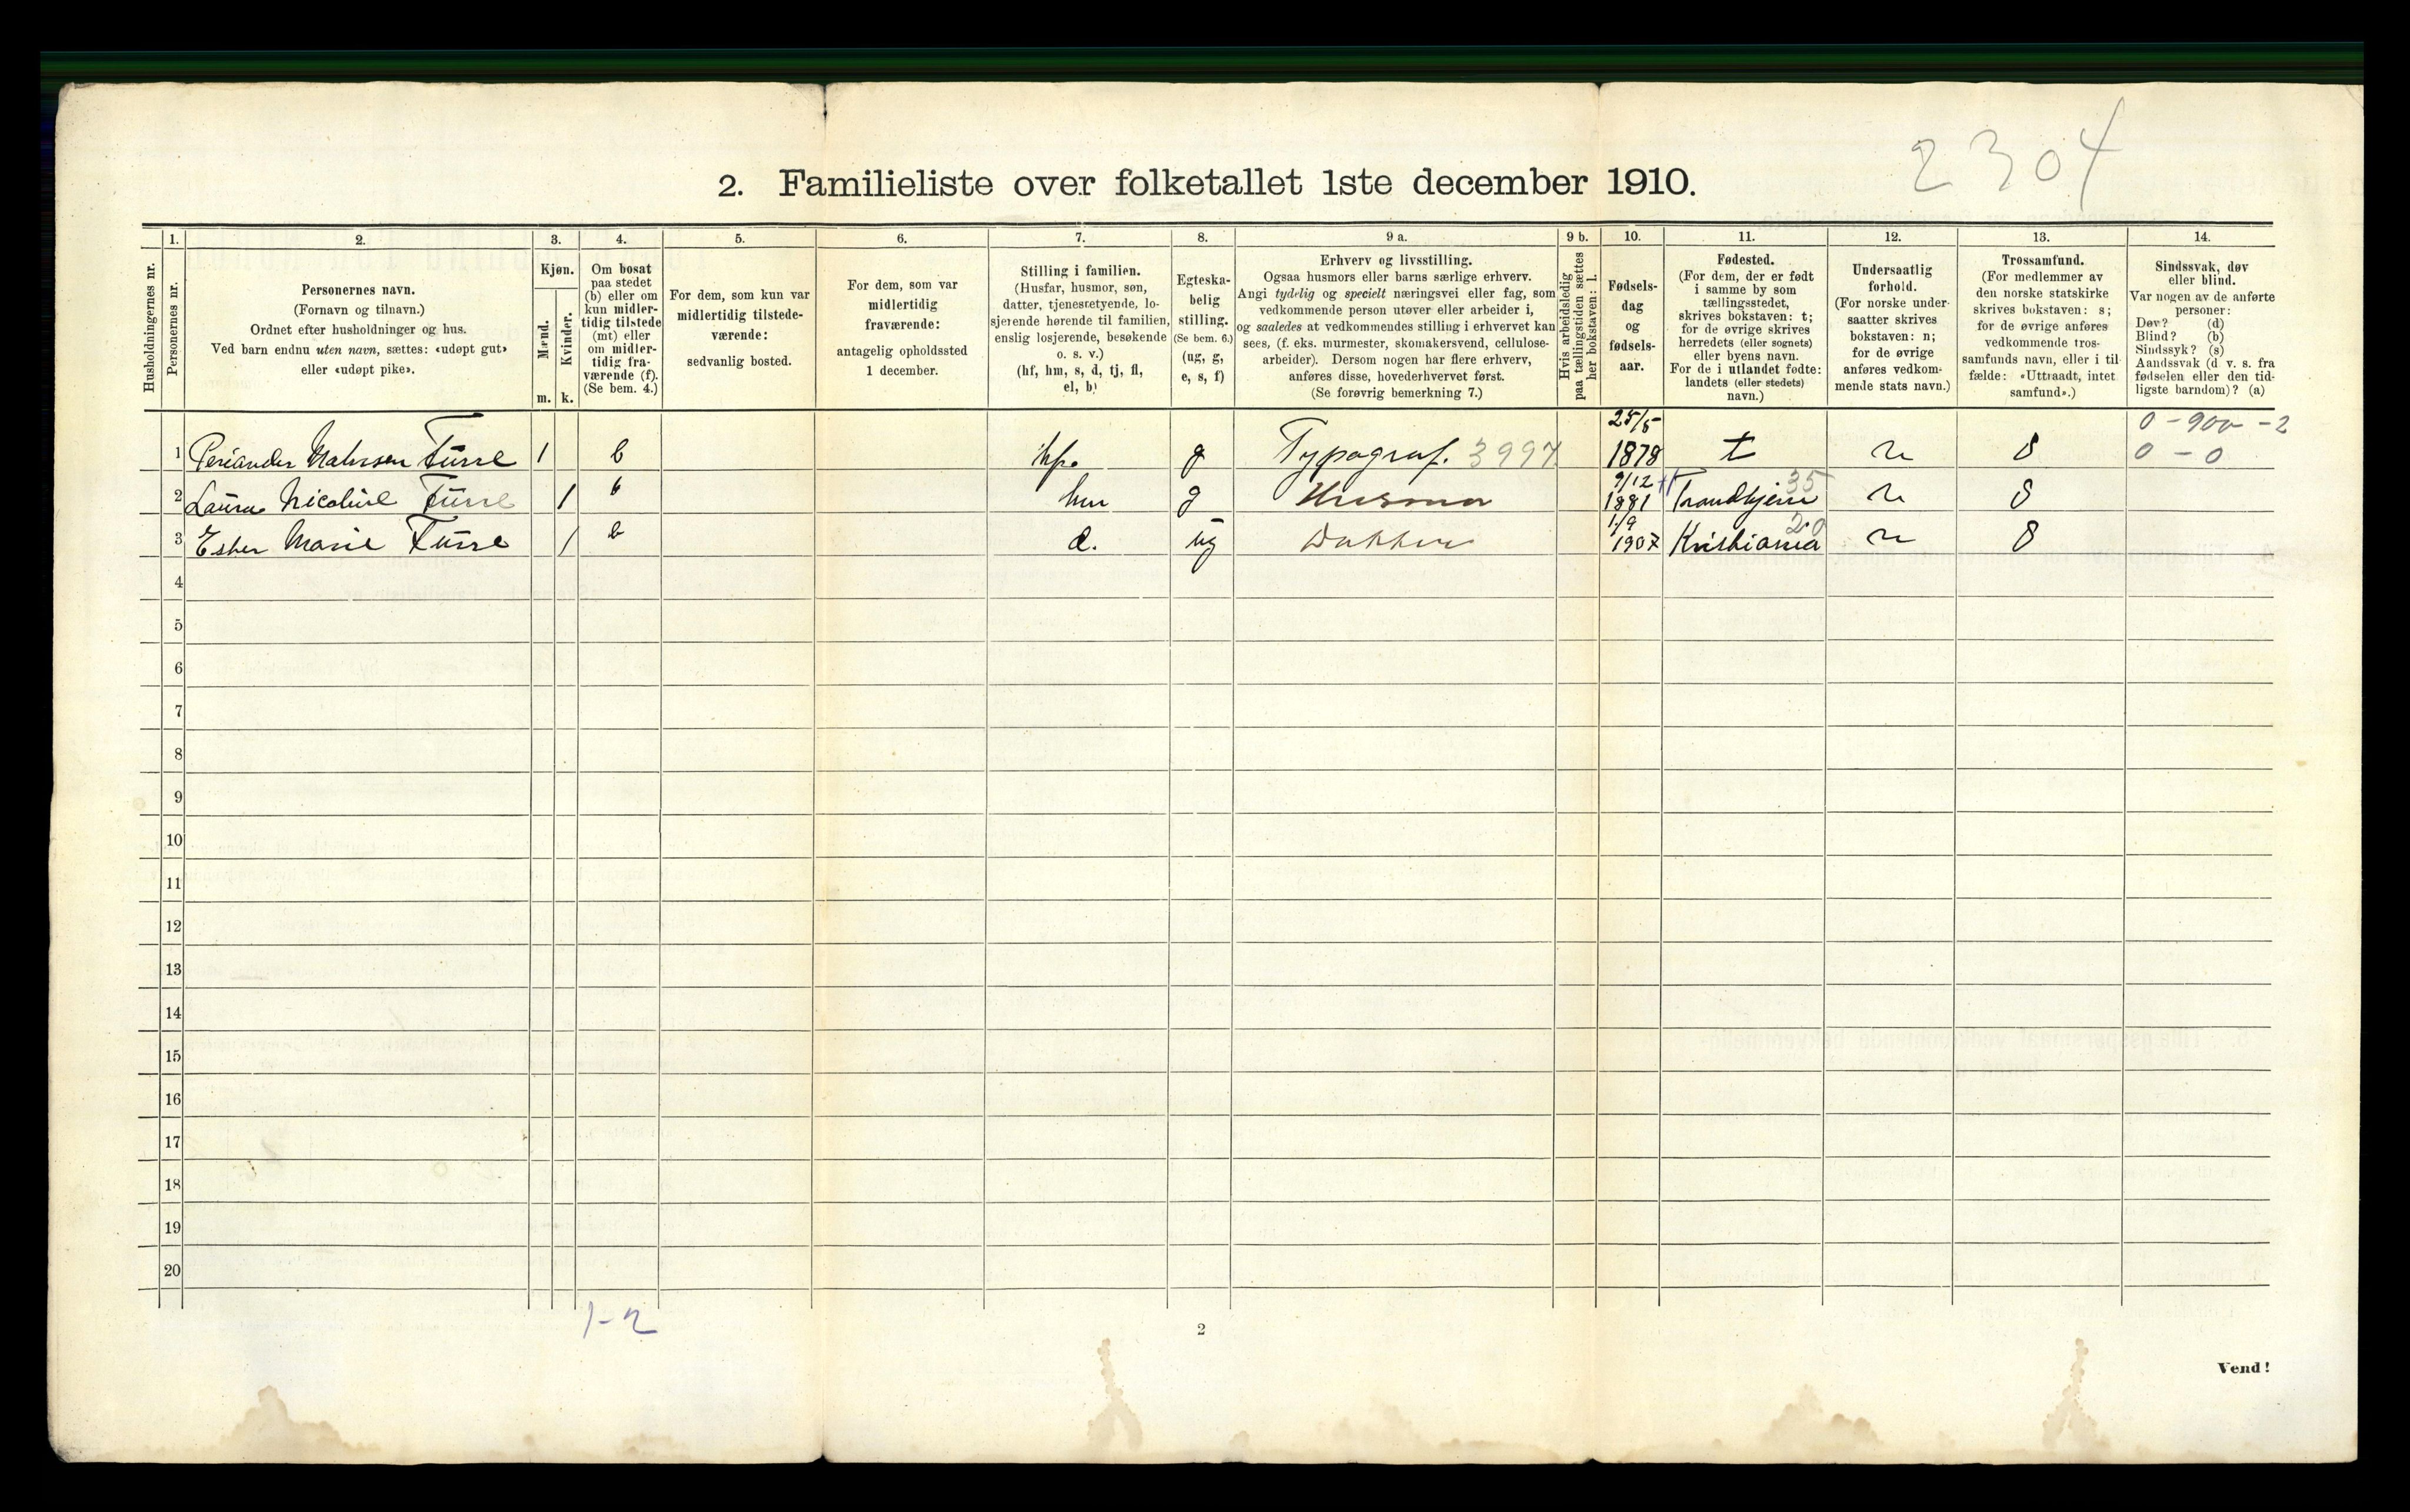 2304
2. Familieliste over folketallet 1ste december 1910.
Husholdningernes nr.
1.
Personernes nr.
2.
Personernes navn.
(Fornavn og tilnavn.)
Ordnet efter husholdninger og hus.
Ved barn endnu uten navn, sættes: «udøpt gut»
eller «udøpt pike».
3.
Kjøn.
Mænd.
m.
Kvinder.
k.
4.
Om bosat
paa stedet
(b) eller om
kun midler-
tidig tilstede
(mt) eller
om midler-
tidig fra-
værende (f).
(Se bem. 4.)
5.
For dem, som kun var
midlertidig tilstede-
værende:
sedvanlig bosted.
6.
For dem, som var
midlertidig
fraværende:
antagelig opholdssted
1 december.
7.
Stilling i familien.
(Husfar, husmor, søn,
datter, tjenestetyende, lo-
sjerende hørende til familien,
enslig losjerende, besøkende
o. s. v.)
(hf, hm, s, d, tj, fl,
el, b)
8.
Egteska-
belig
stilling.
(Se bem. 6.)
(ug, g,
e, s, f)
9 a.
Erhverv og livsstilling.
Ogsaa husmors eller barns særlige erhverv.
Angi tydelig og specielt næringsvei eller fag, som
vedkommende person utøver eller arbeider i,
og saaledes at vedkommendes stilling i erhvervet kan
sees, (f. eks. murmester, skomakersvend, cellulose-
arbeider). Dersom nogen har flere erhverv,
anføres disse, hovederhvervet først.
(Se forøvrig bemerkning 7.)
9 b.
Hvis arbeidsledig
paa tællingstiden sættes
her bokstaven: l.
10.
Fødsels-
dag
og
fødsels-
aar.
11.
Fødested.
(For dem, der er født
i samme by som
tællingsstedet,
skrives bokstaven: t;
for de øvrige skrives
herredets (eller sognets)
eller byens navn.
For de i utlandet fødte:
landets (eller stedets)
navn.)
12.
Undersaatlig
forhold.
(For norske under-
saatter skrives
bokstaven: n;
for de øvrige
anføres vedkom-
mende stats navn.)
13.
Trossamfund.
(For medlemmer av
den norske statskirke
skrives bokstaven: s;
for de øvrige anføres
vedkommende tros-
samfunds navn, eller i til-
fælde: «Uttraadt, intet
samfund».)
14.
Sindssvak, døv
eller blind.
Var nogen av de anførte
personer:
Døv? (d)
Blind? (b)
Sindssyk? (s)
Aandssvak (d. v. s. fra
fødselen eller den tid-
ligste barndom)? (a)
25/5 0-900-2
1 Periander Furre 1 b hf. g Typograf. 3997 1878 t n s 0-0
9/12 35
2 Laura Nicoline Furre 1 b hm g Husmor 1881 Trondhjem n s
1/9 20
3 Ester Marie Furre 1 b d. ug Datter 1907 Kristiania n s
4
5
6
7
8
9
10
11
12
13
14
15
16
17
18
19
20
1-2
2
Vend!